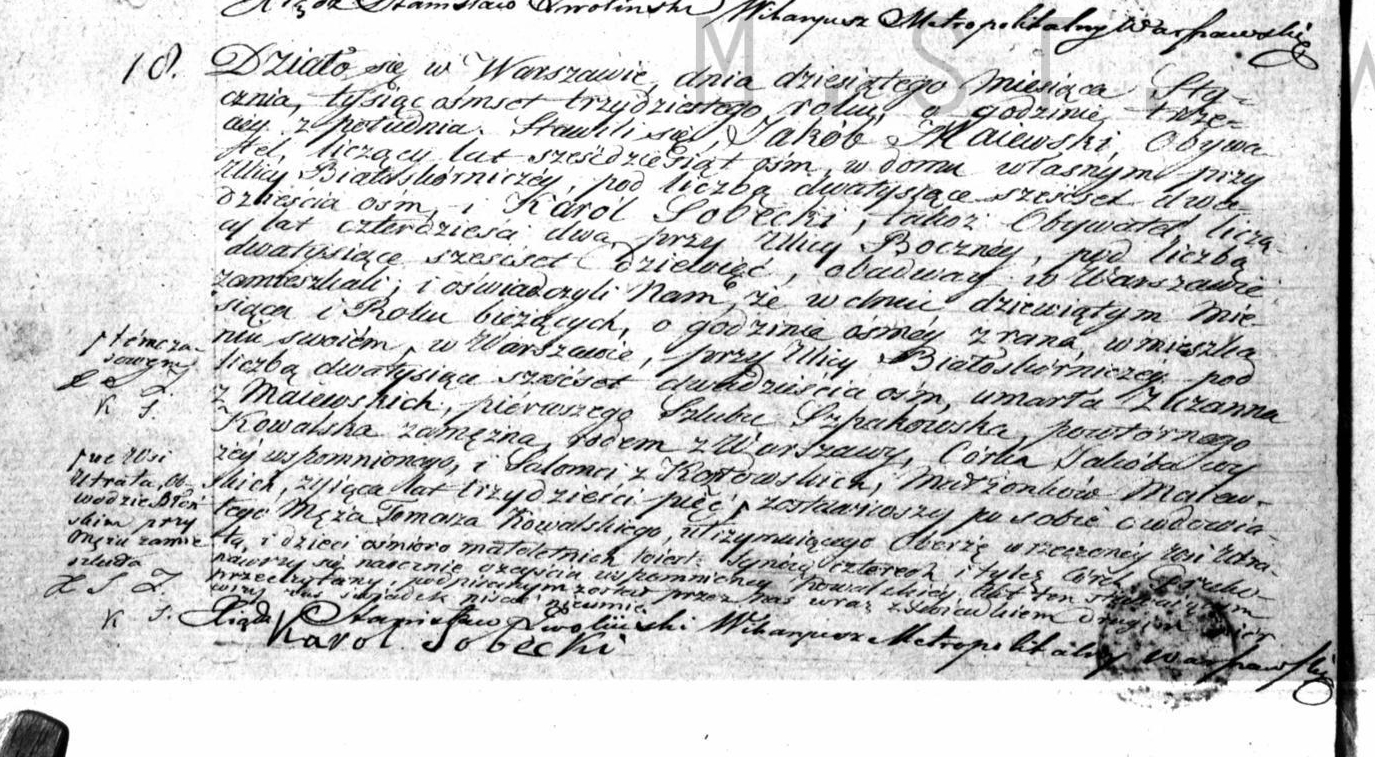 Xiądz Stanisław Zwoliński Wikaryusz Metropolitalny Warszawski
M S T W
18. Działo się w Warszawie, dnia dziesiątego Miesiąca Sty-
cznia, tysiąc ośmset trzydziestego roku, o godzinie trze-
ciey z południa. Stawili się, Jakób Maiewski, Obywa-
tel, liczący lat sześćdziesiąt ośm, w domu własnym przy
Ulicy Białoskórniczey, pod liczbą dwatysiące sześćset dwa-
dzieścia ośm, i Karól Sobecki, takoż Obywatel, liczą-
cy lat czterdzieści dwa, przy Ulicy Boczney, pod liczbą
dwatysiące sześćset dziewięć, obadway w Warszawie
zamieszkali; i oświadczyli Nam, że w dniu dziewiątym Mie-
siąca i Roku bieżących, o godzinie ósmey z rana, w mieszka-
niu swoiém, w Warszawie, przy Ulicy Białoskórniczey pod
liczbą dwatysiące sześćset dwadzieścia ośm, umarła Zuzanna
z Maiewskich, piérwszego Szlubu Szpakowska, powtórnego
Kowalska zamężna, rodem z Warszawy, Córka Jakóba wy-
żéy wspomnionego, i Salomei z Kozłowskich, Małżonków Maiew-
skich, żyiąca lat trzydzieści pięć, zostawiwszy po sobie owdowia-
łego Męża Tomasza Kowalskiego, utrzymuiącego Oberżę w rzeczonéy Wsi Utra-
ta, i dzieci ośmioro małoletnich, to iest: Synów czterech i tyleż Córek. Przeko-
nawszy się naocznie o zeyściu wspomnioney Kowalskiéy, Akt ten stawaiącym
przeczytany, podpisanym został przez Nas wraz z Świadkiem drugim, pierw-
szy zaś Świadek pisać nieumie
Xiądz Stanisław Zwoliński Wikaryusz Metropolitalny Warszawski
Karol Sobecki
témcza-
sowym
X S Z
K S.
we Wsi
Utrata, Ob-
wodzie Błoń-
skim przy
Mężu zamie-
szkała
X S Z.
K S.